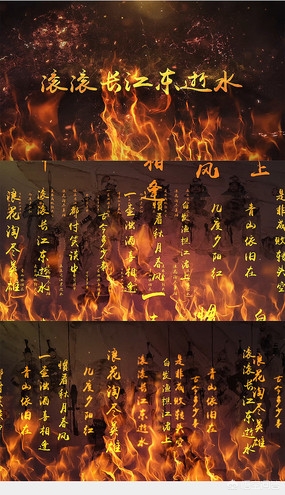 滚滚长江东逝水
是非成败转头空
上
青山依旧在
几度夕阳红
风
白发渔樵江渚上
惯看秋月春风
相逢
一壶浊酒喜相逢
古今多少事
都付笑谈中
滚滚长江东逝水
浪花淘尽英雄
浪花淘尽英雄
滚滚长江东逝水
古今多少事
青山依旧在
是非成败转头空
白发渔樵江渚上
滚滚长江东逝水
浪花淘尽英雄
几度夕阳红
惯看秋月春风
一壶浊酒喜相逢
青山依旧在